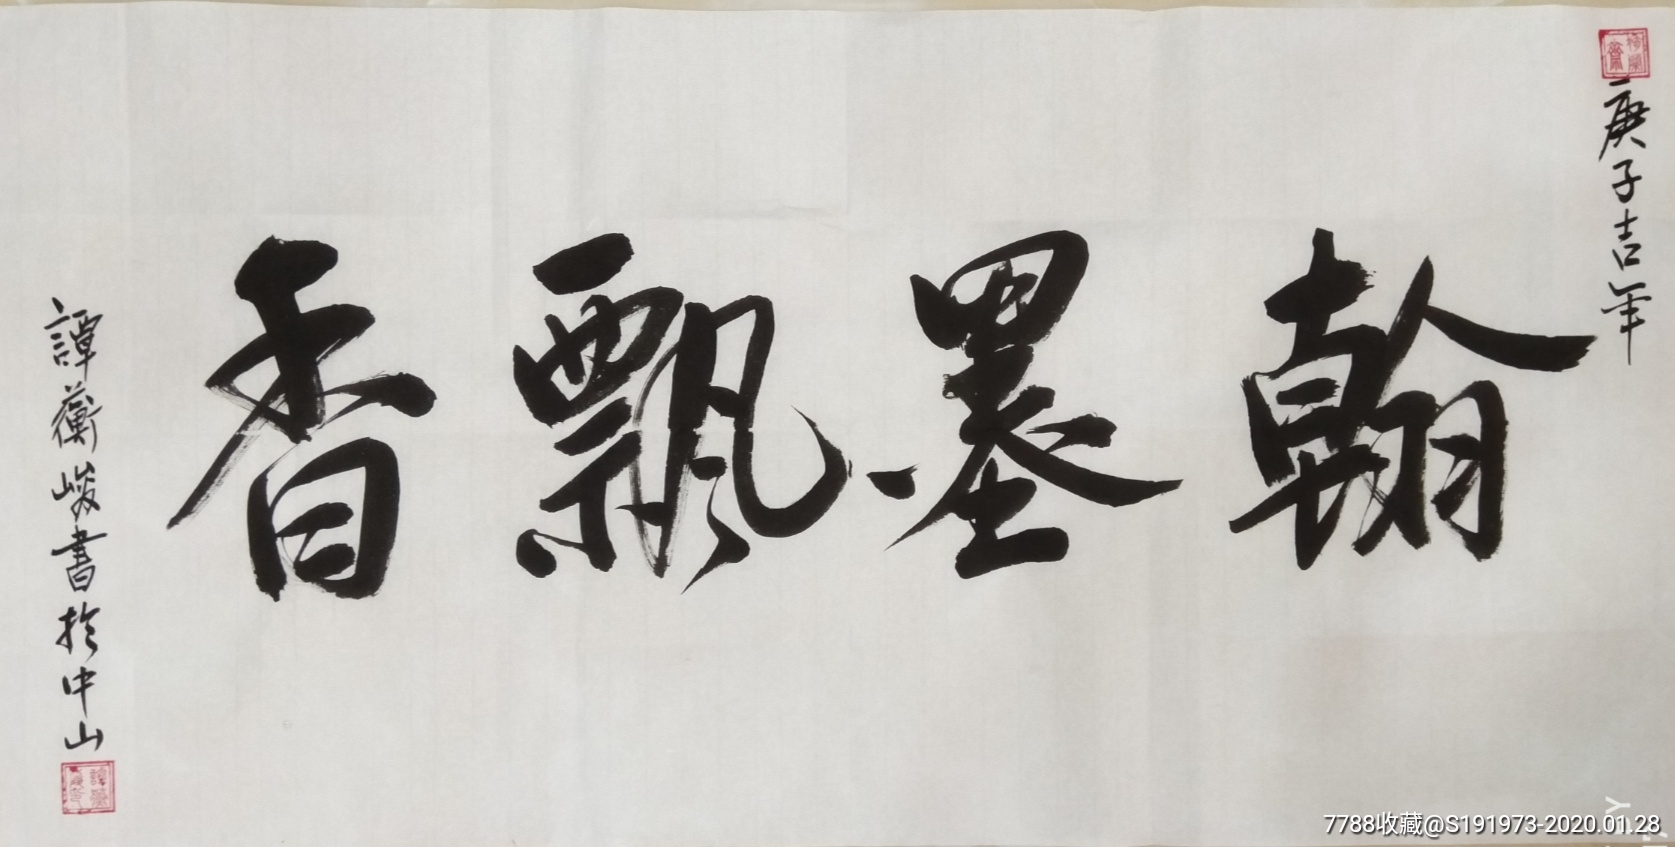 庚子吉年
翰墨飄香
譚蘅峻書於中山
7788收藏@S191973-2020.01.28